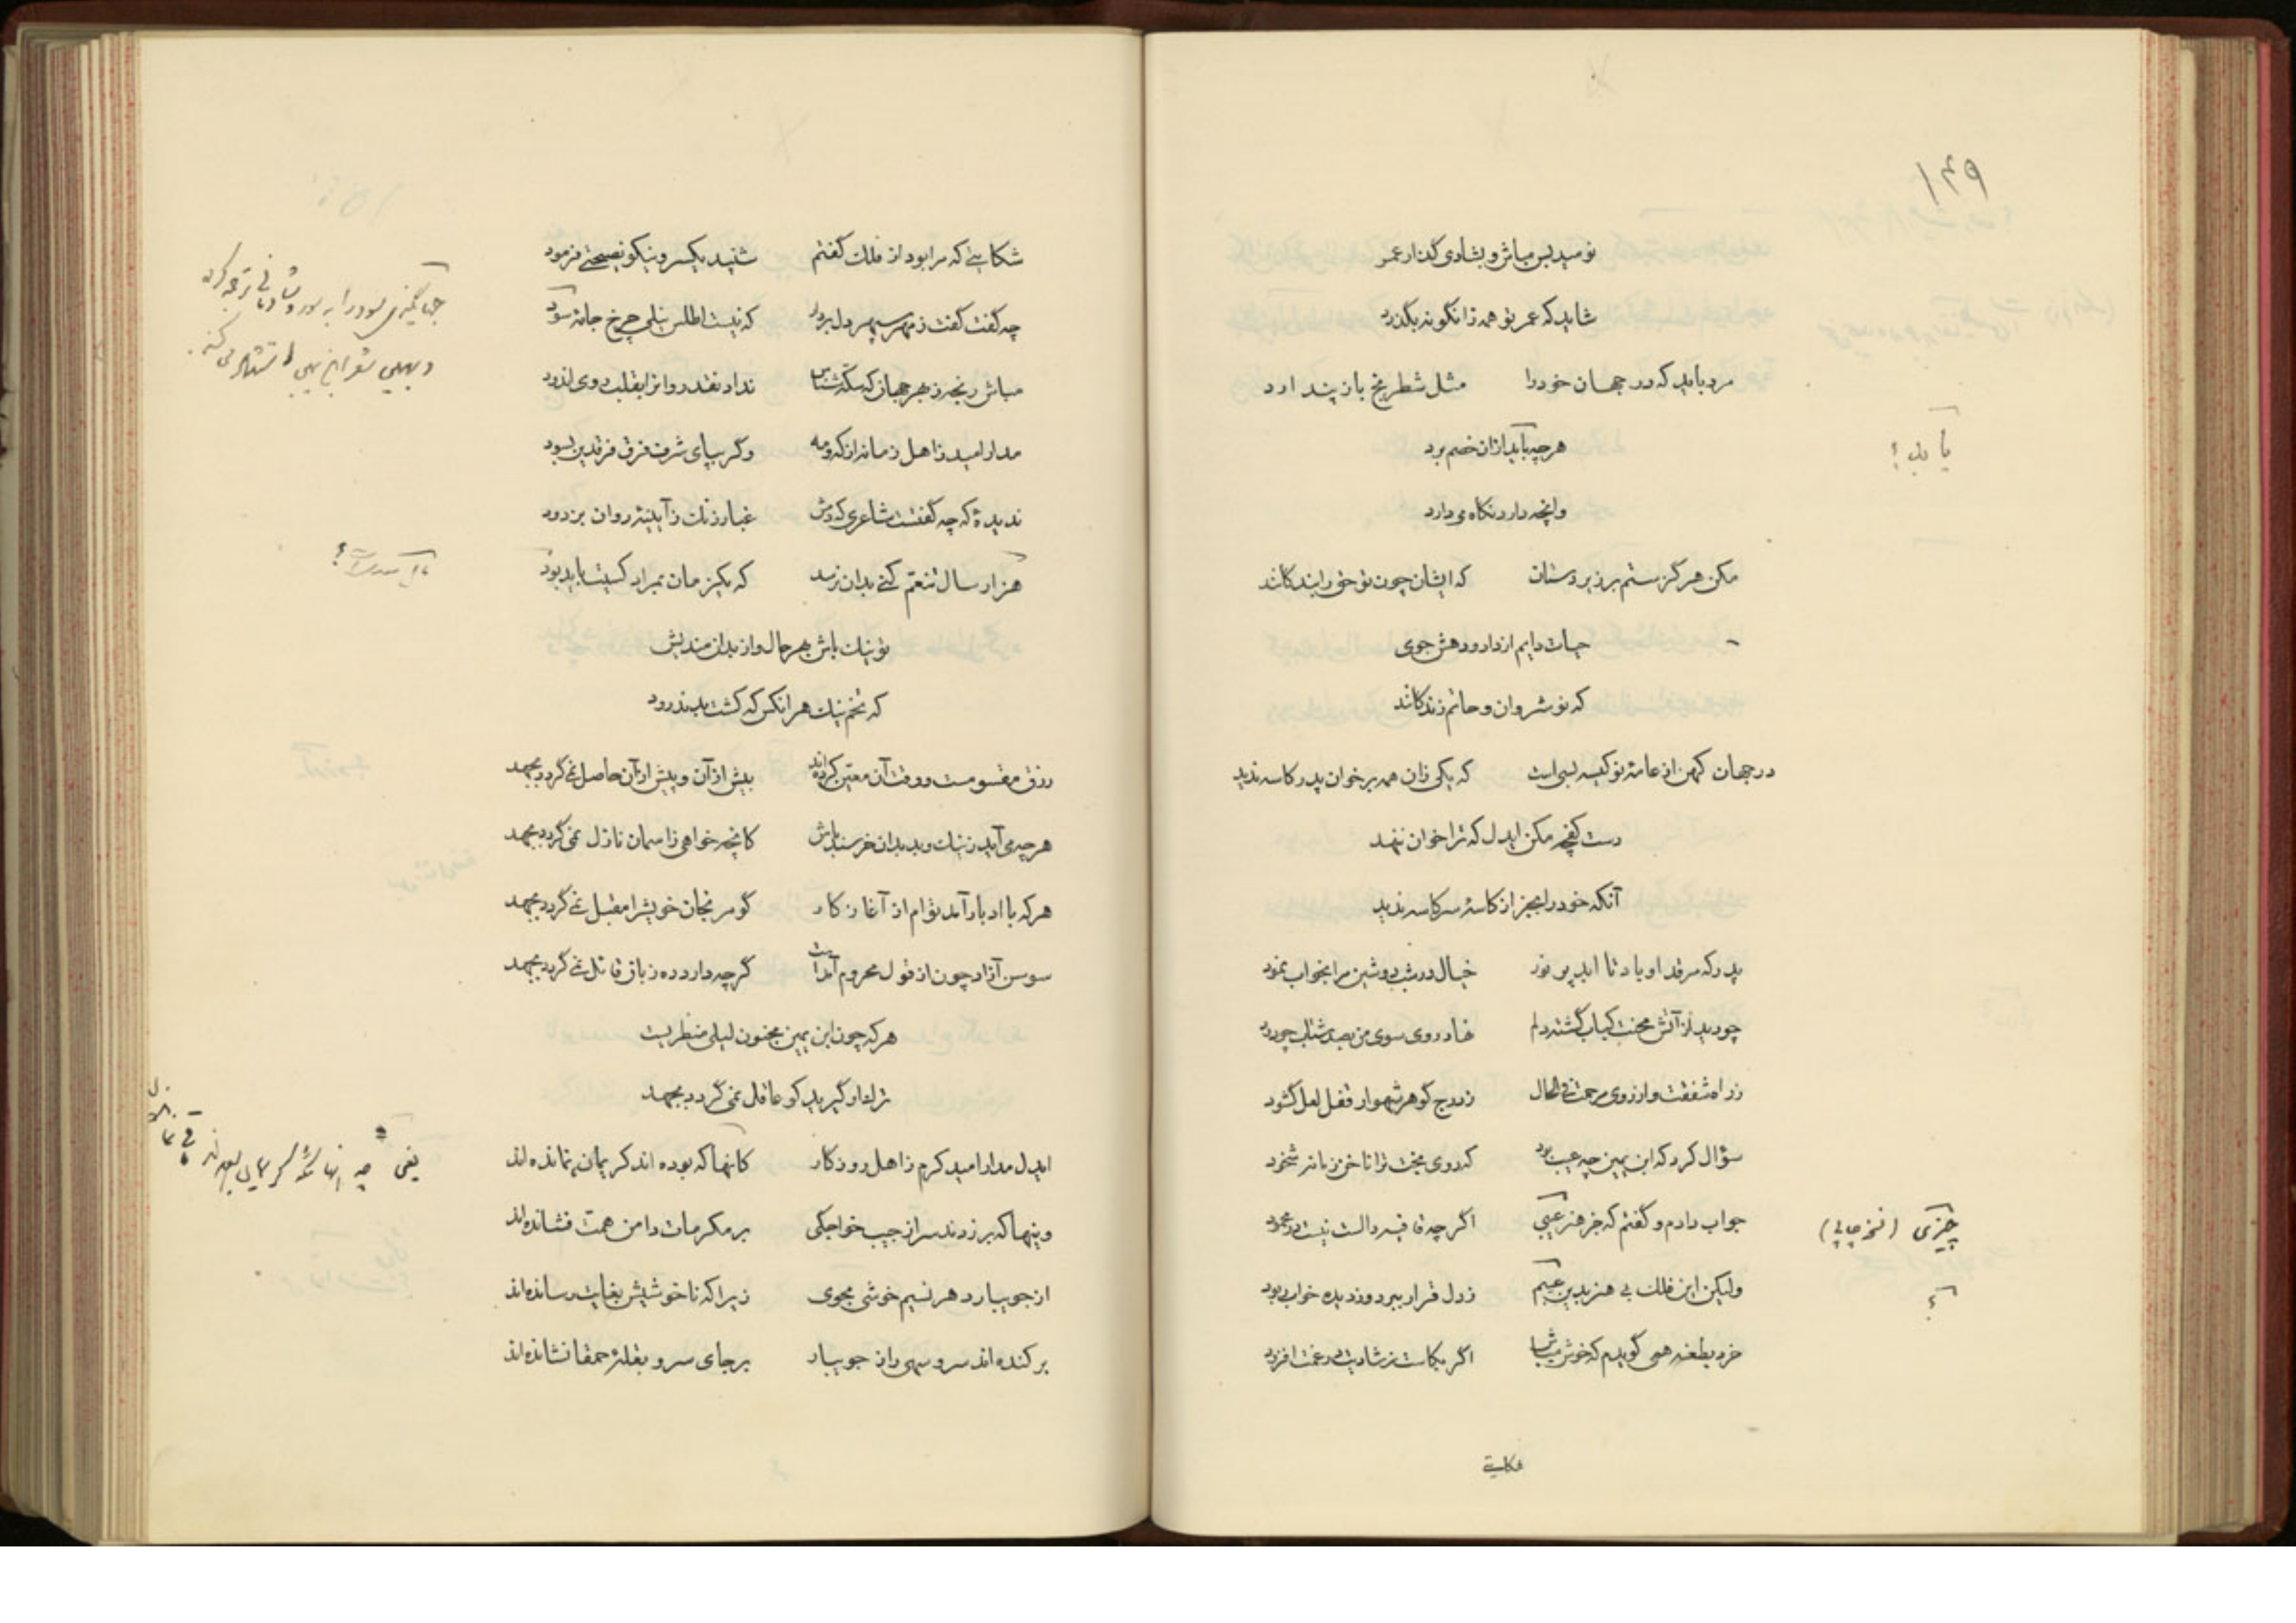 ۱۴۹
نومید بس مباش و بشادی گذار عمر
شاید که عمر تو همه زانگونه بگذرد
مرد باید که در جهان خود را مثل شطرنج باز پندارد
هرچه یابد از آن خصم برد
یا بد؟
وانچه دارد نگاه می دارد
مکن هرگز ستم بر زیردستان که ایشان چون تو حق را بندگانند
حیات دایم از داد و دهش جوی
که نوشروان و حاتم زندگانند
در جهان کهن از عامهٔ نوکیسه بسی است که یکی زان همه بر خوان پدر کاسه ندید
دست کفچه مکن ایدل که ترا خوان ننهد
آنکه خود را بجز از کاسهٔ سر کاسه ندید
پدر که مرقد او باد تا ابد پر نور خیال در شب دوشین مرا بخواب نمود
چو دید از آتش محنت کباب گشته دلم نهاد روی سوی من بصد شتاب چو دود
ز راه شفقت و از روی مرحمت فی الحال ز درج گوهر شهوار قفل لعل گشود
سؤال کرد که ابن یمین چه عیب بود که روی بخت ترا ناخن زمانه شخود
جواب دادم و گفتم که جز هنر عیبی اگرچه قافیه دالست نیست در محمود
چیزی (نسخه چاپی)
ولیکن این فلک بی هنر بدین عیبم ز دل قرار ببرد و ز دیده خواب ربود
؟
خرد بطعنه همی گویدم که خوش میباش اگر بکاست ز شادیت در غمت افزود
شکایتی
شکایتی که مرا بود از فلک گفتم شنید یکسر و نیکو نصیحتی فرمود
چه گفت گفت ز مهر سپهر دل بردار که نیست اطلس نیلی چرخ جامهٔ سود
مباش رنجه ز بهر جهان که سکه شناس نداد نقد روانرا بقلب روی اندود
مدار امید ز اهل زمانه از که و مه وگر بپای شرف فرق فرقدین بسود
ندیدهٔ که چه گفتست شاعری که دمش غبار زنگ ز آیینهٔ روان بزدود
هزار سال تنعم کنی بدان نرسد که یکزمان بمراد کسیت باید بود
تو نیک باش بهر حال و از بدان مندیش
که تخم نیک هر انکس که کشت بد ندرود
رزق مقسومست و وقت آن معین کرده‌اند بیش از آن و پیش از آن حاصل نمی گردد بجهد
هرچه می آید ز نیک و بد بدان خرسند باش کانچه خواهی ز اسمان نازل نمی گردد بجهد
هر که با ادبار آمد توام از آغاز کار گو مرنجان خویش را مقبل نمی گردد بجهد
سوسن آزاد چون از قول محروم آمدست گرچه دارد ده زبان قائل نمی گردد بجهد
هر که چون ابن یمین مجنون لیلی منظریست
ترک او گیرید کو عاقل نمی گردد بجهد
ایدل مدار امید کرم ز اهل روزگار کانها که بوده اند کریمان نمانده اند
وینها که برزدند سر از جیب خواجگی بر مکرمات دامن همت فشانده اند
از جویبار دهر نسیم خوشی مجوی زیرا که ناخوشیش بغایت رسانده اند
برکنده اند سرو سهی را ز جویبار بر جای سرو بقلهٔ حمقا نشانده اند